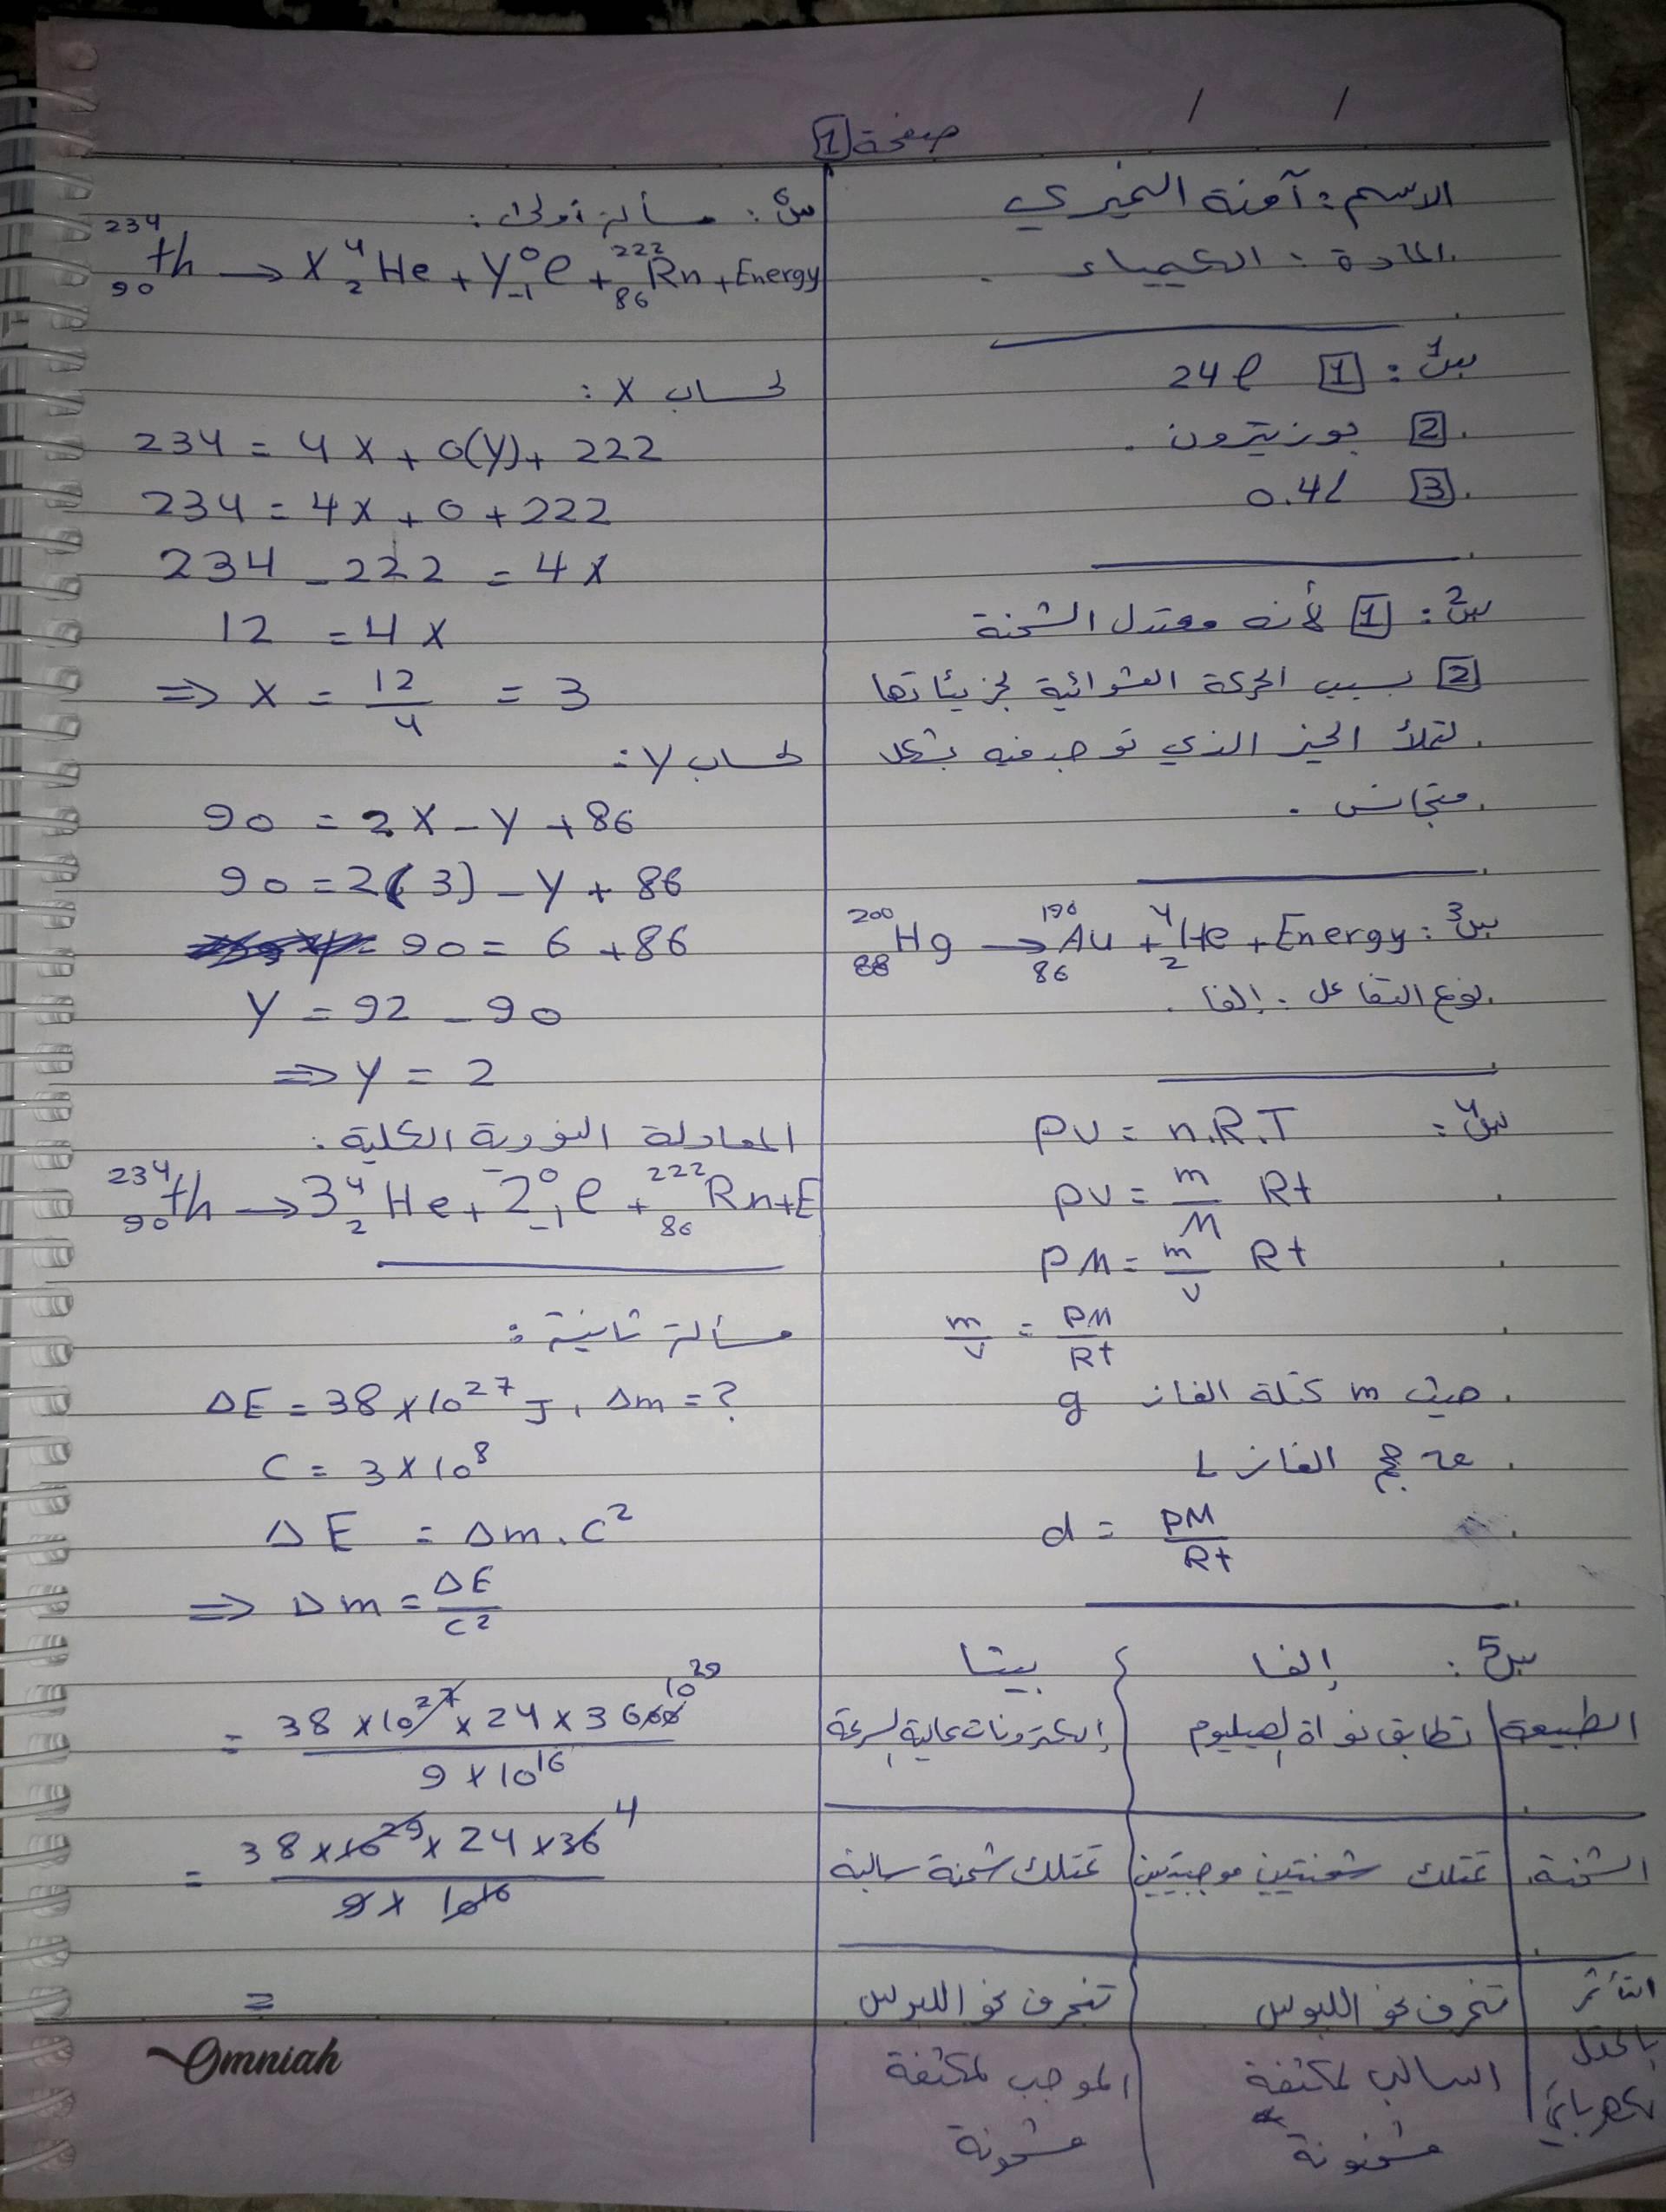 صفحة 1
الاسم: آمنة النميري
المادة: الكيمياء.
س1: 1 24 l
2 بوزيترون.
3 0.4 L
س2: 1 لأنه معتدل الشحنة
2 بسبب الحركة العشوائية لجزيئاتها
لتملأ الحيز الذي توجد فيه بشكل
متجانس.
س3: ²⁰⁰₈₈Hg → ¹⁹⁶₈₆Au + ⁴₂He + Energy
نوع التفاعل: إلفا.
س4: PV = n.R.T
PV = m/M Rt
PM = m/V Rt
m/V = PM/Rt
حيث m كتلة الغاز g
v حجم الغاز L
d = PM/Rt
س5: إلفا بيتا
الطبيعة تطابق نواة الهيليوم إلكترونات عالية السرعة
الشحنة تمتلك شحنتين موجبتين تمتلك شحنة سالبة
التأثر تنحرف نحو اللبوس تنحرف نحو اللبوس
بالحقل السالب لمكثفة الموجب لمكثفة
الكهربائي مشحونة مشحونة
س6: مسألة أولى:
²³⁴₉₀th → X ⁴₂He + Y ⁰₋₁e + ²²²₈₆Rn + Energy
لحساب X:
234 = 4X + 0(Y) + 222
234 = 4X + 0 + 222
234 - 222 = 4X
12 = 4X
⇒ X = 12/4 = 3
لحساب Y:
90 = 2X - Y + 86
90 = 2(3) - Y + 86
90 = 6 + 86
Y = 92 - 90
⇒ Y = 2
المعادلة النووية الكلية:
²³⁴₉₀th → 3 ⁴₂He + 2 ⁰₋₁e + ²²²₈₆Rn + E
مسألة ثانية:
ΔE = 38 × 10²⁷ J, Δm = ?
C = 3 × 10⁸
ΔE = Δm . C²
⇒ Δm = ΔE/C²
= 38 × 10²⁷ × 24 × 3600 10²⁹ / 9 × 10¹⁶
= 38 × 10²⁹ × 24 × 36 4 / 9 × 10¹⁶
=
Omniah